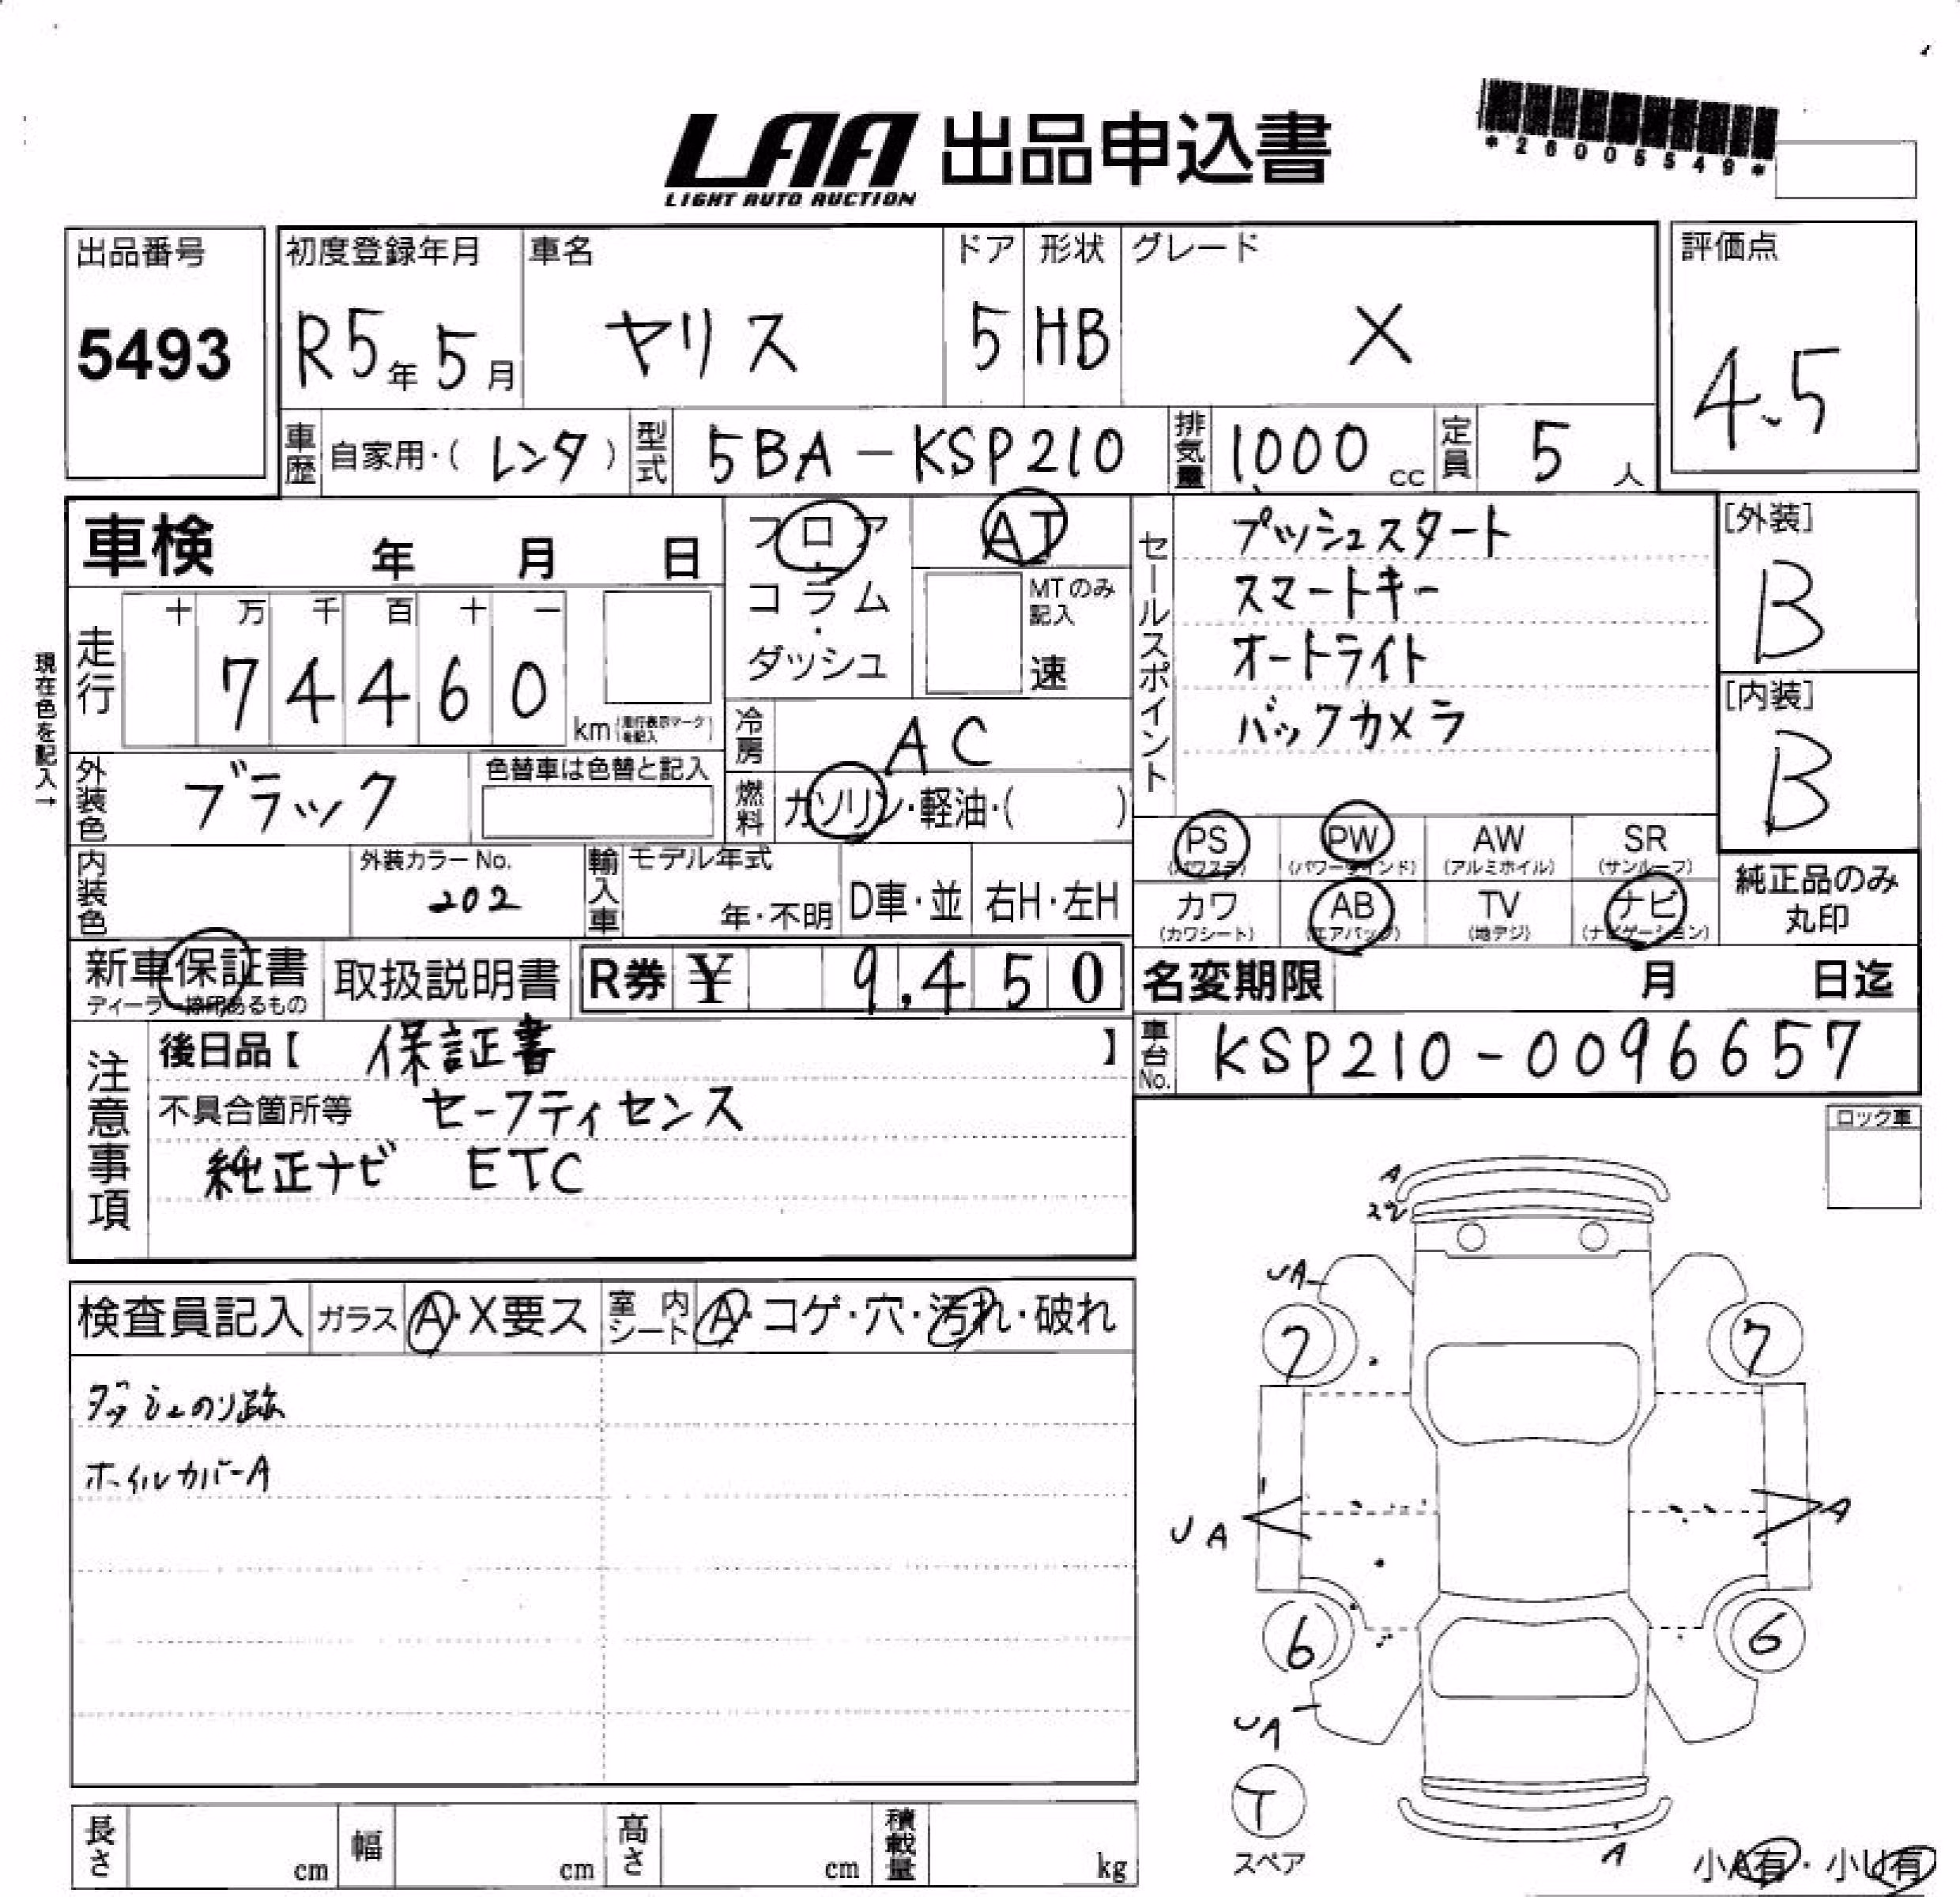 LAA 出品申込書
LIGHT AUTO AUCTION
*26005549*
出品番号
5493
初度登録年月 車名 ドア 形状 グレード 評価点
R5年 5月 ヤリス 5 HB X 4.5
車歴 自家用・( レンタ ) 型式 5BA-KSP210 排気量 1,000 cc 定員 5 人
車検 年 月 日
フロア・コラム・ダッシュ
AT
MTのみ記入
速
セールスポイント
プッシュスタート
スマートキー
オートライト
バックカメラ
[外装]
B
[内装]
B
現在色を記入→
走行 十 万 千 百 十 一
7 4 4 6 0 km (走行表示マークを記入)
冷房 AC
外装色 ブラック 色替車は色替と記入
燃料 ガソリン・軽油・( )
内装色 外装カラーNo. 202
輸入車 モデル年式 年・不明 D車・並 右H・左H
PS (パワステ) PW (パワーウインド) AW (アルミホイル) SR (サンルーフ)
カワ (カワシート) AB (エアバッグ) TV (地デジ) ナビ (ナビゲーション)
純正品のみ丸印
新車保証書 ディーラー捺印あるもの 取扱説明書 R券 ¥ 9,450
名変期限 月 日迄
車台No. KSP210-0096657
注意事項
後日品【 保証書 】
不具合箇所等 セーフティセンス
純正ナビ ETC
ロック車
検査員記入 ガラス A・X要ス 室内シート A・コゲ・穴・汚れ・破れ
ダッシュのリ跡
ホイルカバーA
A
UA
7 7
UA A
6 6
UA
T
スペア
A
小A有・小U有
長さ cm 幅 cm 高さ cm 積載量 kg